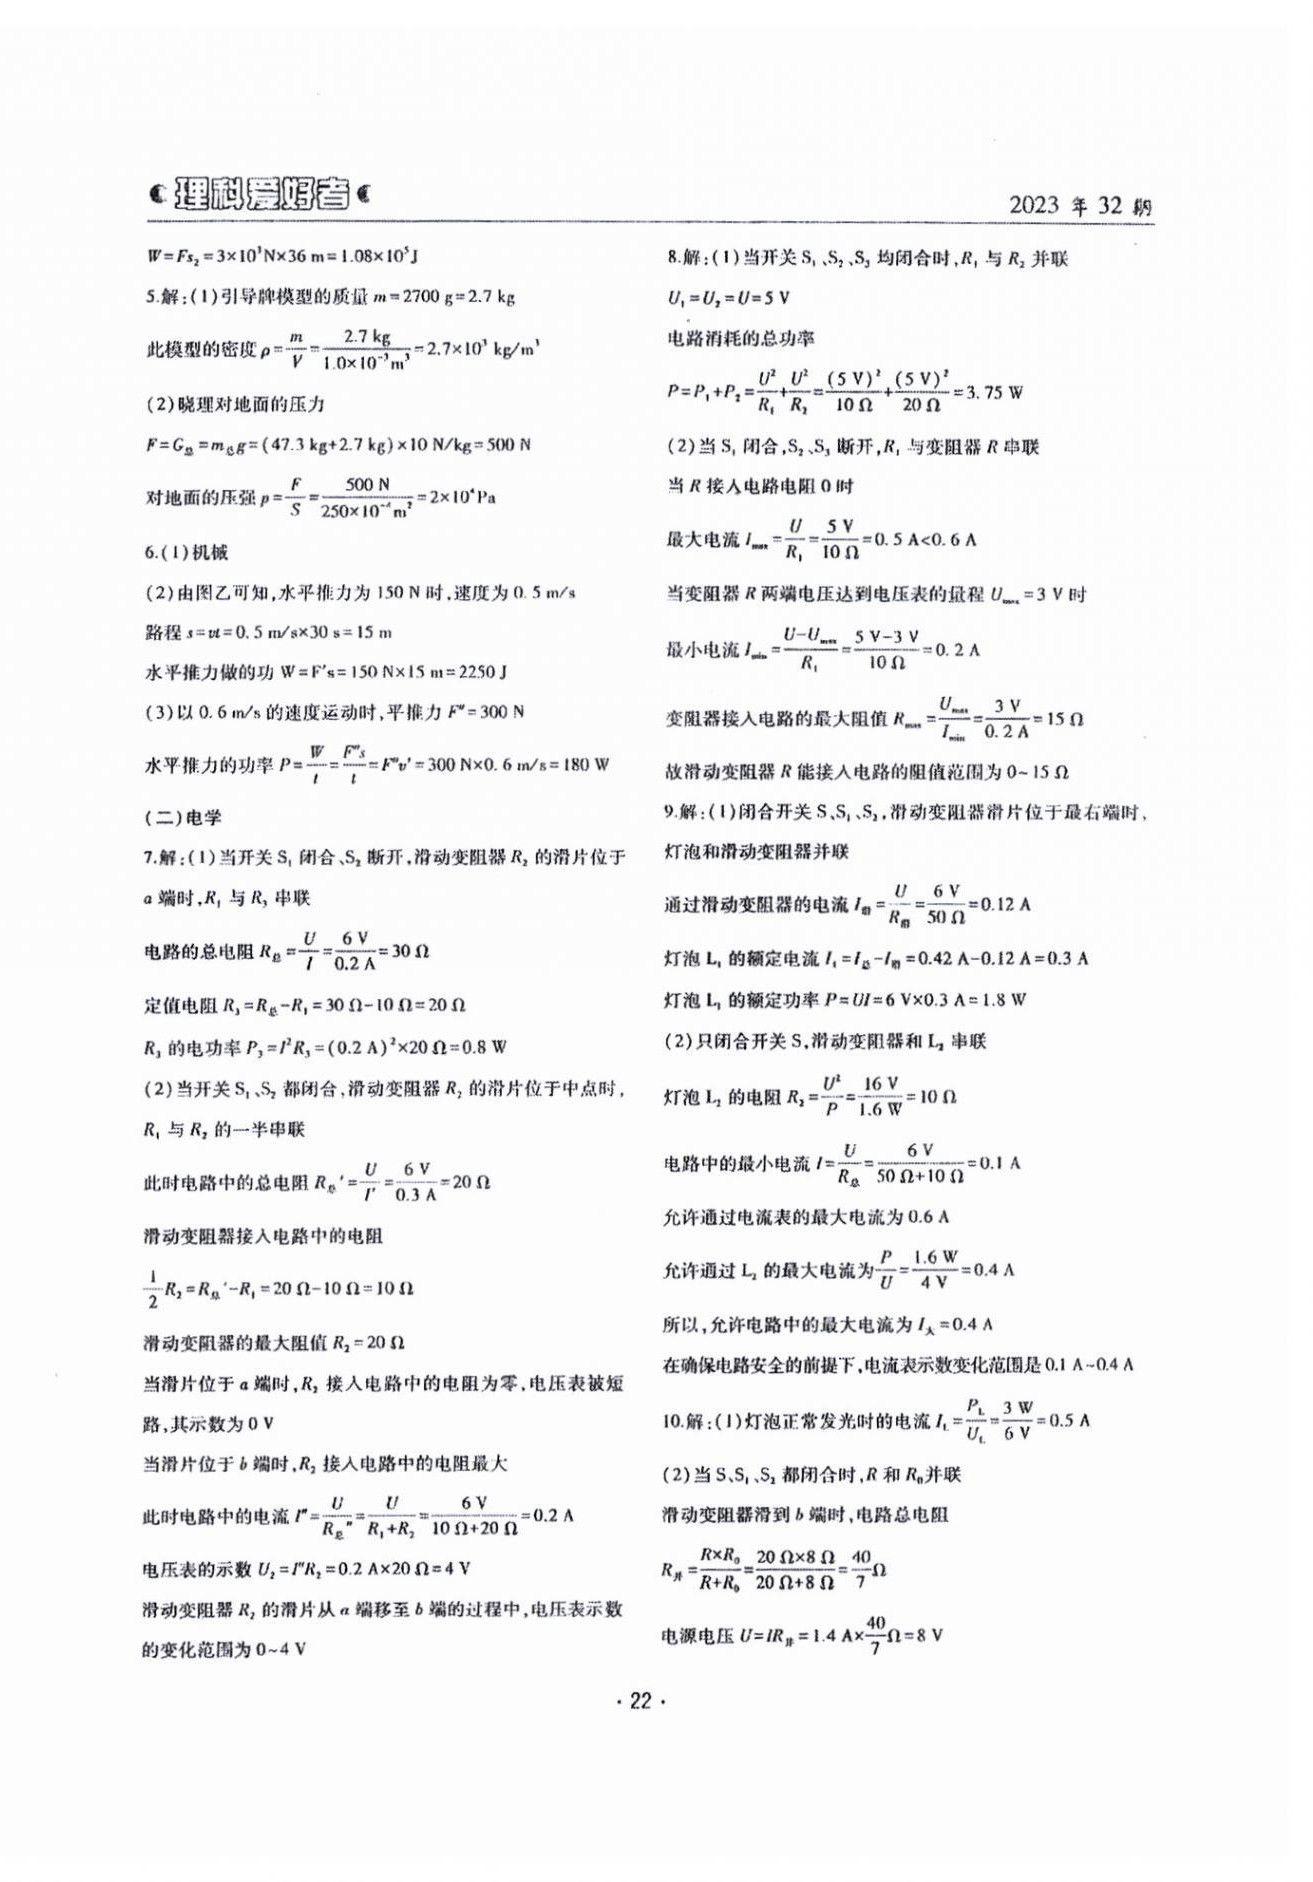 理科爱好者
2023 年 32 期
W=Fs₂=3×10³N×36 m=1.08×10⁵J
5.解:(1)引导牌模型的质量 m=2700 g=2.7 kg
此模型的密度 ρ=m/V=2.7 kg/1.0×10⁻³m³=2.7×10³ kg/m³
(2)晓理对地面的压力
F=G总=m总g=(47.3 kg+2.7 kg)×10 N/kg=500 N
对地面的压强 p=F/S=500 N/250×10⁻⁴m²=2×10⁴Pa
6.(1)机械
(2)由图乙可知,水平推力为 150 N 时,速度为 0.5 m/s
路程 s=vt=0.5 m/s×30 s=15 m
水平推力做的功 W=F's=150 N×15 m=2250 J
(3)以 0.6 m/s 的速度运动时,平推力 F″=300 N
水平推力的功率 P=W/t=F″s/t=F″v'=300 N×0.6 m/s=180 W
(二)电学
7.解:(1)当开关 S₁ 闭合、S₂ 断开,滑动变阻器 R₂ 的滑片位于
a 端时,R₁ 与 R₃ 串联
电路的总电阻 R总=U/I=6 V/0.2 A=30 Ω
定值电阻 R₃=R总-R₁=30 Ω-10 Ω=20 Ω
R₃ 的电功率 P₃=I²R₃=(0.2 A)²×20 Ω=0.8 W
(2)当开关 S₁、S₂ 都闭合,滑动变阻器 R₂ 的滑片位于中点时,
R₁ 与 R₂ 的一半串联
此时电路中的总电阻 R总'=U/I'=6 V/0.3 A=20 Ω
滑动变阻器接入电路中的电阻
1/2 R₂=R总'-R₁=20 Ω-10 Ω=10 Ω
滑动变阻器的最大阻值 R₂=20 Ω
当滑片位于 a 端时,R₂ 接入电路中的电阻为零,电压表被短
路,其示数为 0 V
当滑片位于 b 端时,R₂ 接入电路中的电阻最大
此时电路中的电流 I″=U/R总″=U/R₁+R₂=6 V/10 Ω+20 Ω=0.2 A
电压表的示数 U₂=I″R₂=0.2 A×20 Ω=4 V
滑动变阻器 R₂ 的滑片从 a 端移至 b 端的过程中,电压表示数
的变化范围为 0~4 V
8.解:(1)当开关 S₁、S₂、S₃ 均闭合时,R₁ 与 R₂ 并联
U₁=U₂=U=5 V
电路消耗的总功率
P=P₁+P₂=U²/R₁+U²/R₂=(5 V)²/10 Ω+(5 V)²/20 Ω=3.75 W
(2)当 S₁ 闭合,S₂、S₃ 断开,R₁ 与变阻器 R 串联
当 R 接入电路电阻 0 时
最大电流 Imax=U/R₁=5 V/10 Ω=0.5 A<0.6 A
当变阻器 R 两端电压达到电压表的量程 Umax=3 V 时
最小电流 Imin=U-Umax/R₁=5 V-3 V/10 Ω=0.2 A
变阻器接入电路的最大阻值 Rmax=Umax/Imin=3 V/0.2 A=15 Ω
故滑动变阻器 R 能接入电路的阻值范围为 0~15 Ω
9.解:(1)闭合开关 S、S₁、S₂,滑动变阻器滑片位于最右端时,
灯泡和滑动变阻器并联
通过滑动变阻器的电流 I滑=U/R滑=6 V/50 Ω=0.12 A
灯泡 L₁ 的额定电流 I₁=I总-I滑=0.42 A-0.12 A=0.3 A
灯泡 L₁ 的额定功率 P=UI=6 V×0.3 A=1.8 W
(2)只闭合开关 S,滑动变阻器和 L₂ 串联
灯泡 L₂ 的电阻 R₂=U²/P=16 V/1.6 W=10 Ω
电路中的最小电流 I=U/R总=6 V/50 Ω+10 Ω=0.1 A
允许通过电流表的最大电流为 0.6 A
允许通过 L₂ 的最大电流为 P/U=1.6 W/4 V=0.4 A
所以,允许电路中的最大电流为 I大=0.4 A
在确保电路安全的前提下,电流表示数变化范围是 0.1 A~0.4 A
10.解:(1)灯泡正常发光时的电流 IL=PL/UL=3 W/6 V=0.5 A
(2)当 S、S₁、S₂ 都闭合时,R 和 R₀并联
滑动变阻器滑到 b 端时,电路总电阻
R并=R×R₀/R+R₀=20 Ω×8 Ω/20 Ω+8 Ω=40/7Ω
电源电压 U=IR并=1.4 A×40/7Ω=8 V
·22·